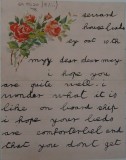 servant
house lads
my dear dear may
i hope you
are quite well i
wonder what it is
like on board ship
i hope your beds
are comforterbel and
that you dont get